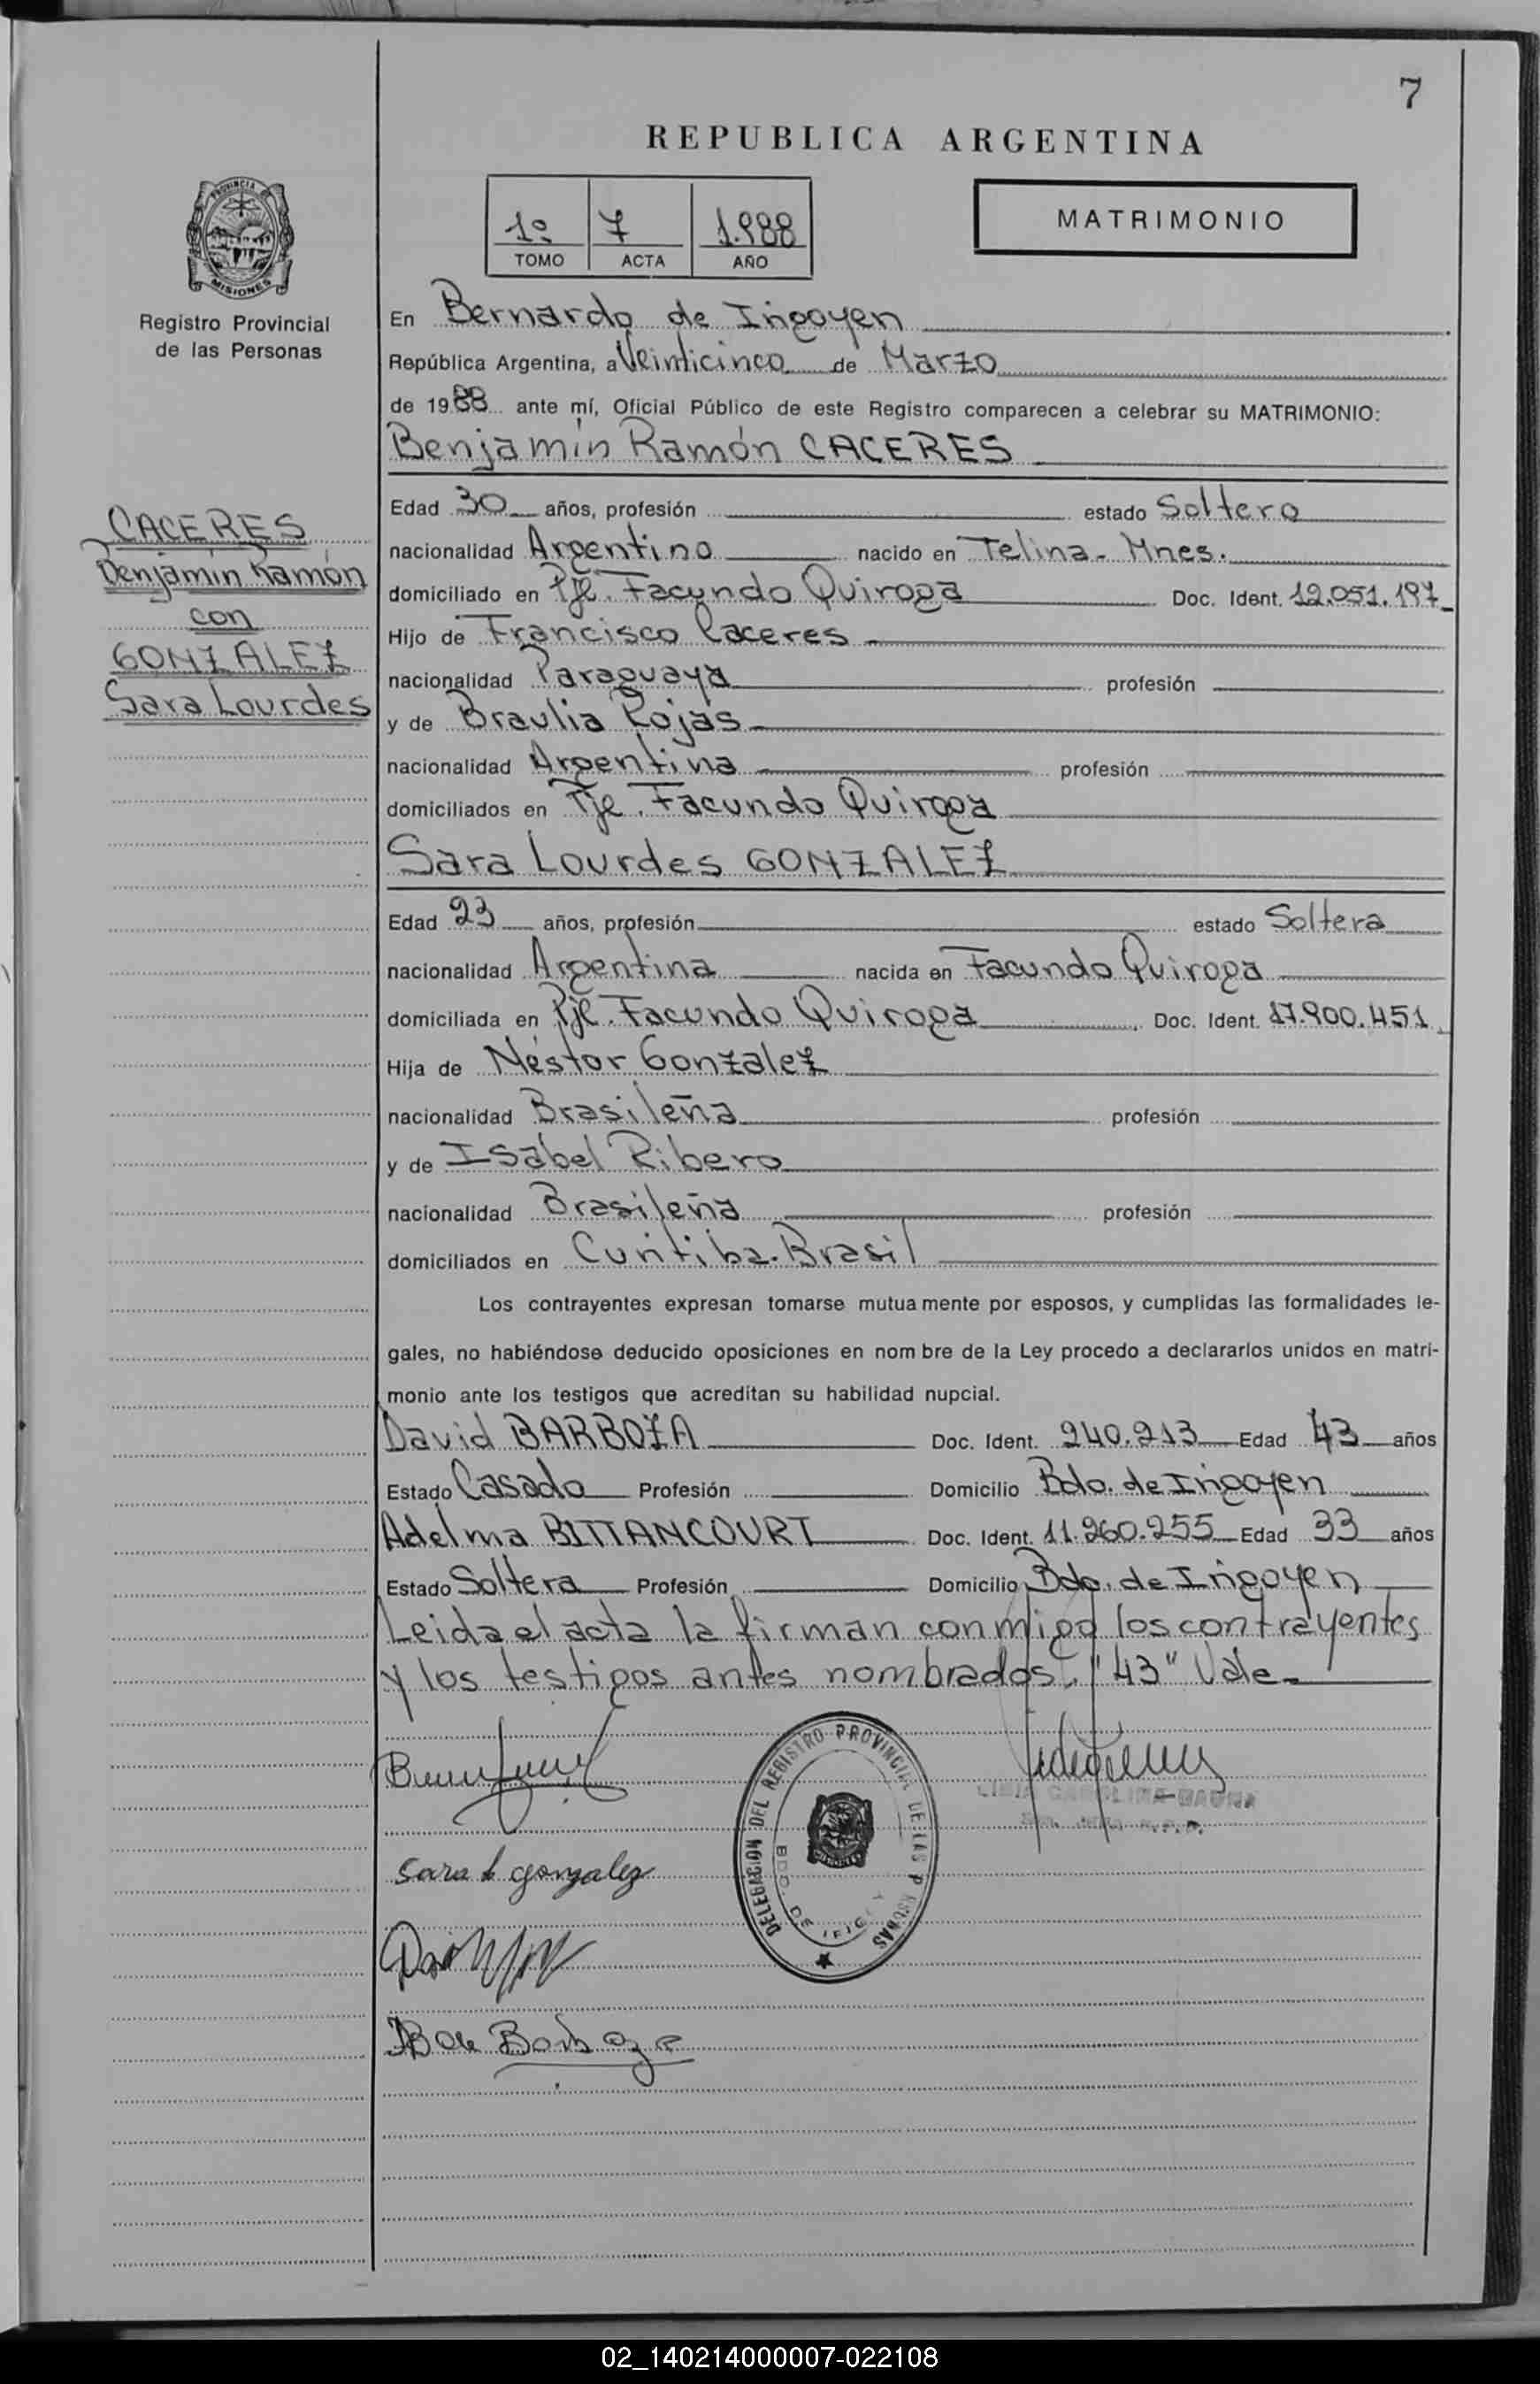 7
REPUBLICA ARGENTINA
PROVINCIA
MISIONES
Registro Provincial
de las Personas
1º 7 1.988
TOMO ACTA AÑO
MATRIMONIO
En Bernardo de Irigoyen
República Argentina, a Veinticinco de Marzo
de 1988 ante mí, Oficial Público de este Registro comparecen a celebrar su MATRIMONIO:
Benjamín Ramón CACERES
CACERES
Benjamín Ramón
con
GONZALEZ
Sara Lourdes
Edad 30 años, profesión estado Soltero
nacionalidad Argentino nacido en Telina- Mnes.
domiciliado en Pje. Facundo Quiroga Doc. Ident. 12.051.197
Hijo de Francisco Caceres
nacionalidad Paraguaya profesión
y de Braulia Rojas
nacionalidad Argentina profesión
domiciliados en Pje. Facundo Quiroga
Sara Lourdes GONZALEZ
Edad 23 años, profesión estado Soltera
nacionalidad Argentina nacida en Facundo Quiroga
domiciliada en Pje. Facundo Quiroga Doc. Ident. 17.900.451
Hija de Néstor Gonzalez
nacionalidad Brasileña profesión
y de Isabel Ribero
nacionalidad Brasileña profesión
domiciliados en Curitiba-Brasil
Los contrayentes expresan tomarse mutuamente por esposos, y cumplidas las formalidades le-
gales, no habiéndose deducido oposiciones en nombre de la Ley procedo a declararlos unidos en matri-
monio ante los testigos que acreditan su habilidad nupcial.
David BARBOZA Doc. Ident. 240.213 Edad 43 años
Estado Casado Profesión Domicilio Bdo. de Irigoyen
Adelma BITTANCOURT Doc. Ident. 11.260.255 Edad 33 años
Estado Soltera Profesión Domicilio Bdo. de Irigoyen
Leida el acta la firman conmigo los contrayentes
y los testigos antes nombrados. "43" Vale-
DELEGACION DEL REGISTRO PROVINCIAL DE LAS PERSONAS
BDO. DE IRIGOYEN
Sara L gonzalez
02_140214000007-022108